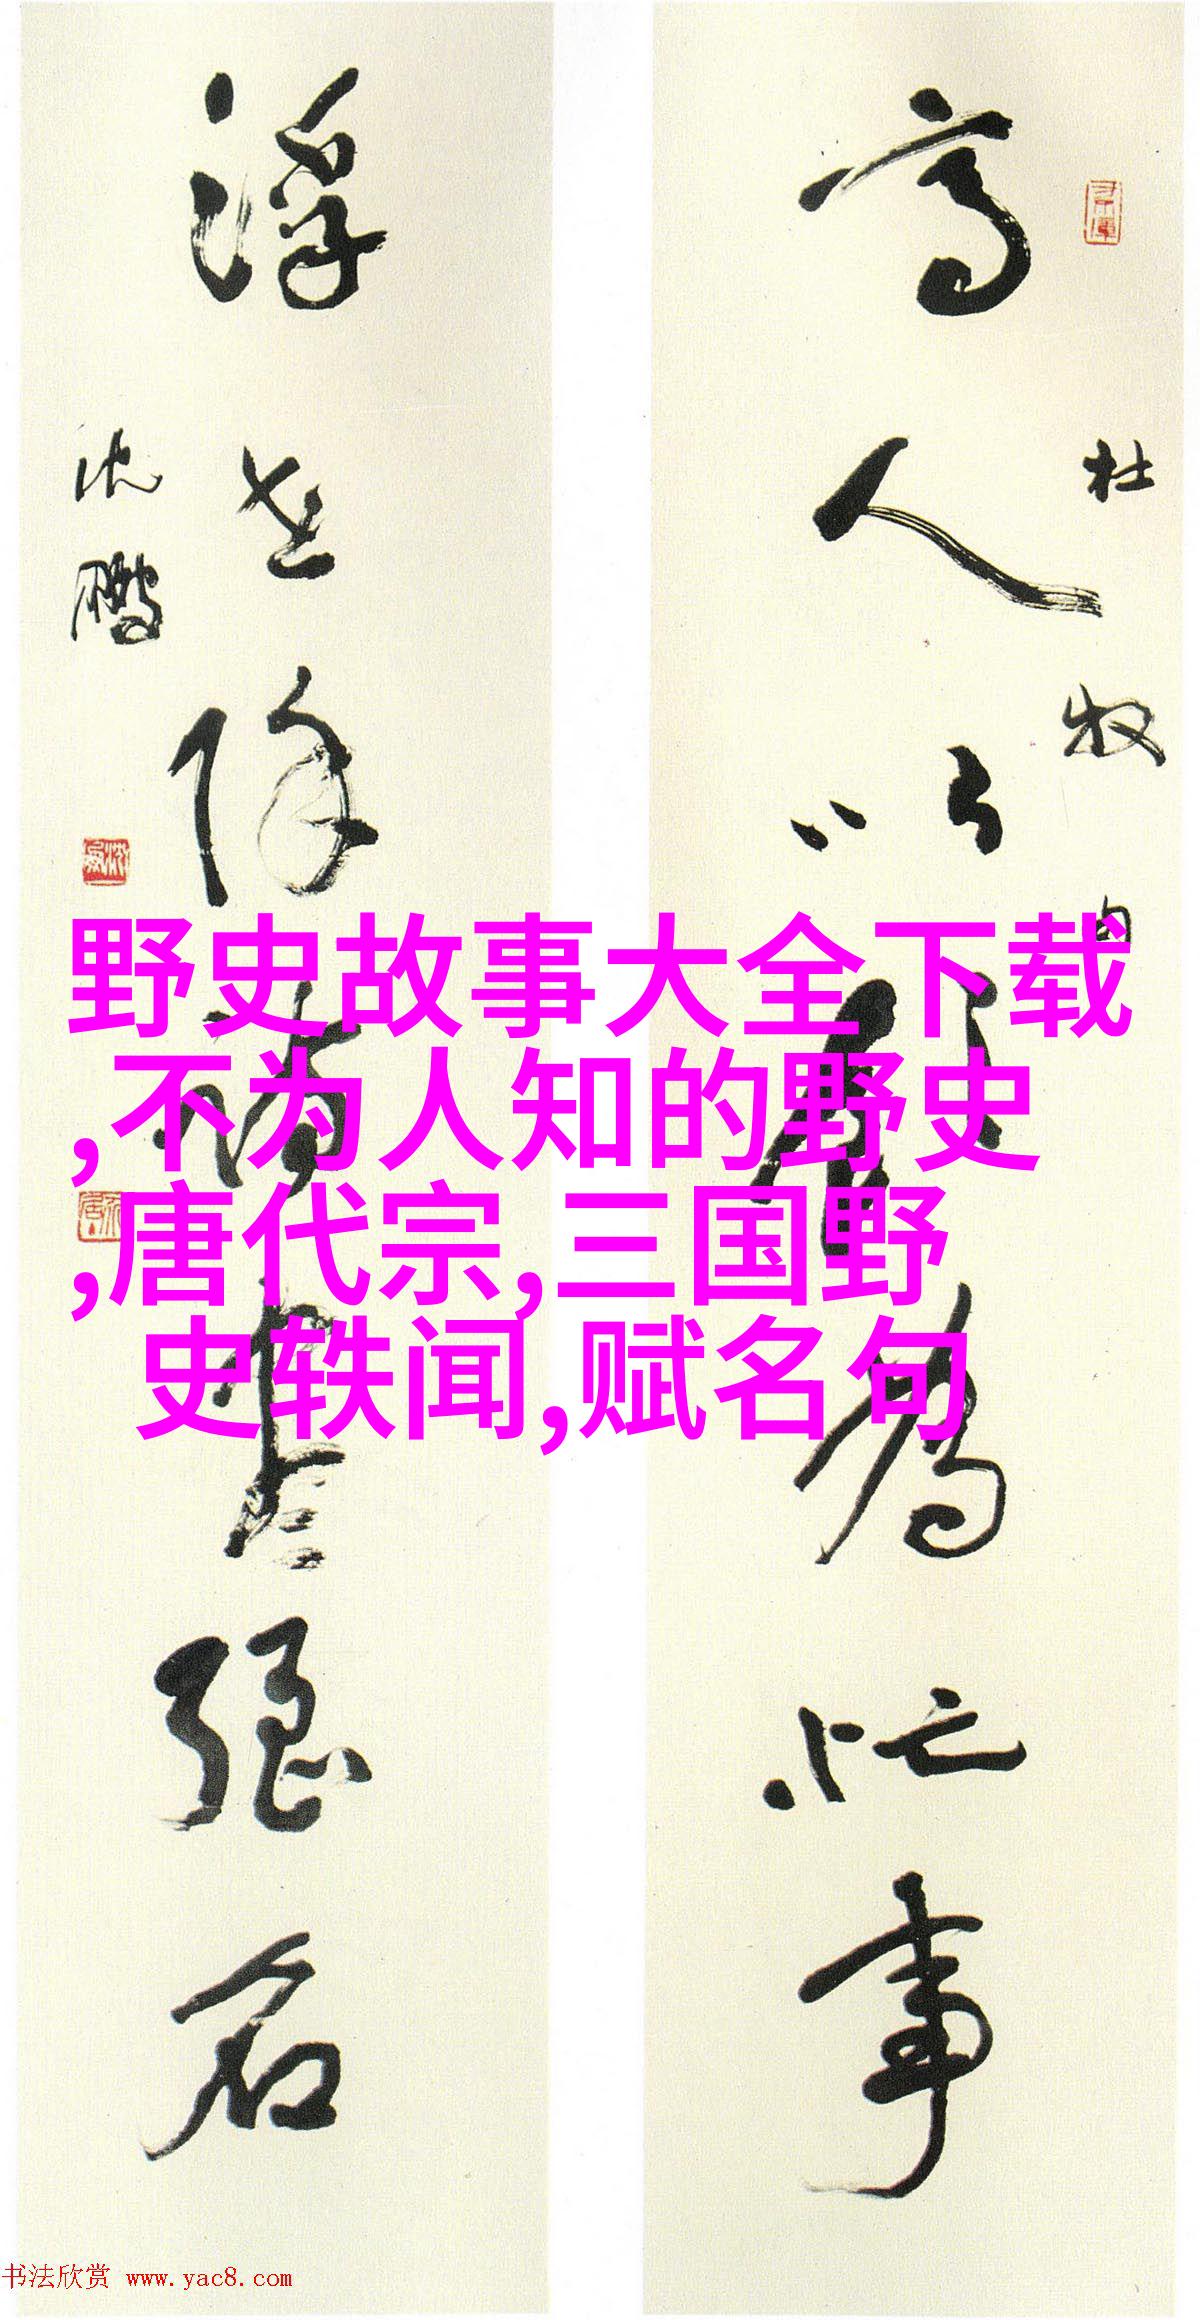 杜牧句
高人以飲為忙事
浮世除詩盡強名
沈鵬
野史故事大全下载
,不为人知的野史
,唐代宗,三国野
史轶闻,赋名句
书法欣赏 www.yac8.com